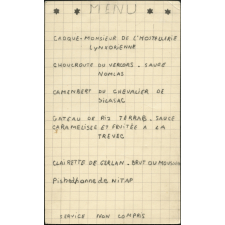 MENU
CROQUE-MONSIEUR DE L'HOSTELLERIE
LYNXORIENNE
CHOUCROUTE DU VERCORS _ SAUCE
NOMLAS
CAMEMBERT DU CHEVALIER DE
DICASAC
GATEAU DE RIZ TERRAB _ SAUCE
CARAMELISEE ET FRUITÉE A LA
TREVEC
CLAIRETTE DE GERLAN _ BRUT OU MOUSSEUX
de NITAP
SERVICE NON COMPRIS